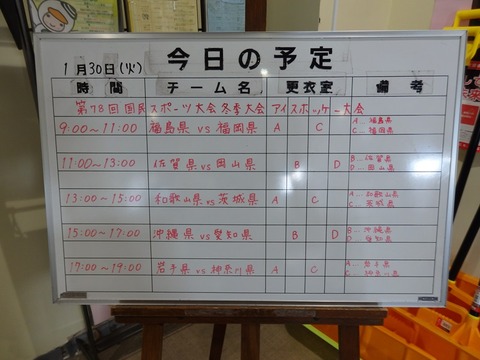 今日の予定
1月30日(火)
時間 チーム名 更衣室 備考
第78回国民スポーツ大会冬季大会アイスホッケー大会
9:00~11:00 福島県 vs 福岡県 A C A…福島県 C…福岡県
11:00~13:00 佐賀県 vs 岡山県 B D B…佐賀県 D…岡山県
13:00~15:00 和歌山県 vs 茨城県 A C A…和歌山県 C…茨城県
15:00~17:00 沖縄県 vs 愛知県 B D B…沖縄県 D…愛知県
17:00~19:00 岩手県 vs 神奈川県 A C A…岩手県 C…神奈川県